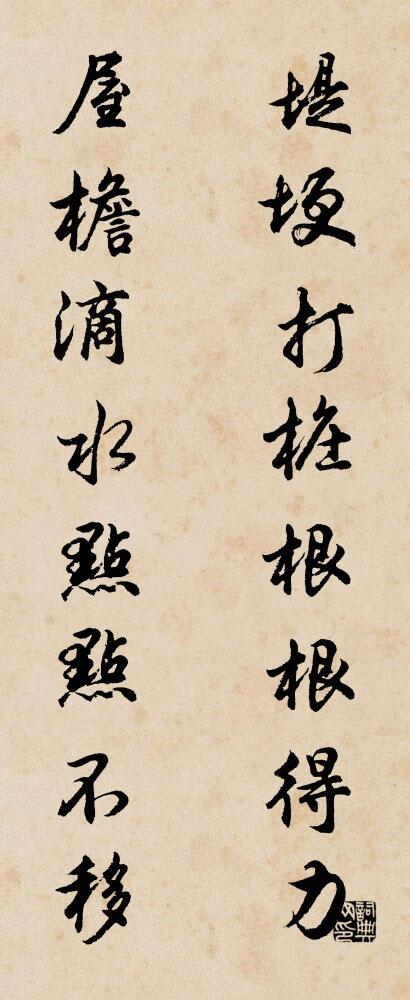 堤埂打樁根根得力
屋檐滴水點點不移
詞典網印